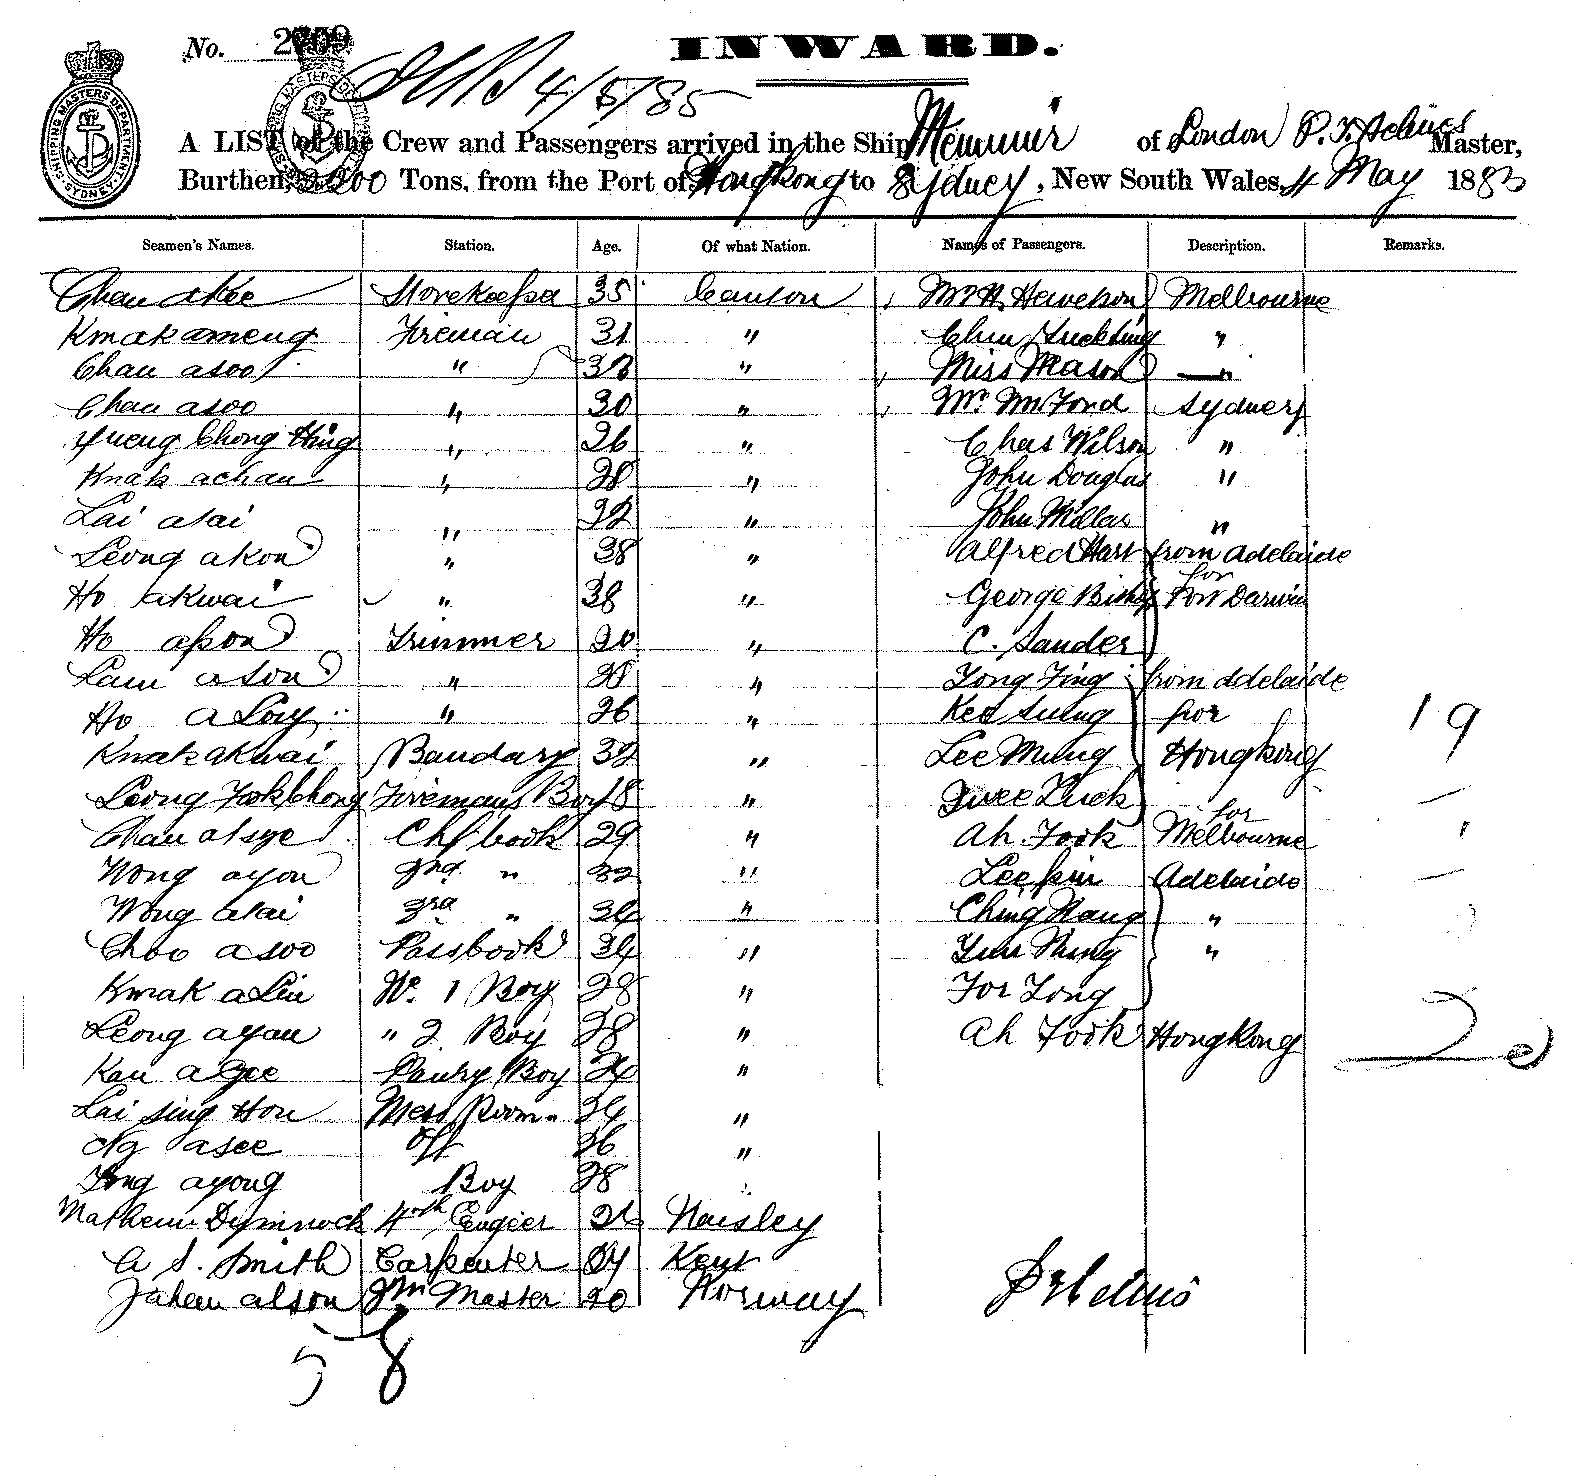 No. 2709
INWARD.
4/5/85
A LIST of the Crew and Passengers arrived in the Ship Memnuir of London P. T. Helms Master,
Burthen, Tons, from the Port of Hongkong to Sydney, New South Wales, 4 May 1885
Seamen's Names. Station. Age. Of what Nation. Names of Passengers. Description. Remarks.
Chau akee Storekeeper 35 Canton Melbourne
Kmakameng Fireman 31 " Chin Sucksing "
Chau asoo " " Miss Mason "
Chau asoo " 30 " Mr. Wm Ford Sydney
Yueng Chong Hing " 26 " Chas Wilson "
Knak achau " 28 " John Douglas "
Lai atai " 32 " John Millar "
Leong akon " 38 " Alfred Hart from Adelaide
Ho akwai " 38 " George for Port Darwin
Ho apon Trimmer 20 " C. Sander
Lam ason " 28 " Tong Ting from Adelaide
Ho a Loy " 26 " Kee Sung for 19
Kmak akwai Bandary 32 " Lee Mung Hongkong
Leong Fook Chong Firemans Boy 18 " Luck
Chau atsye Chf Cook 29 " Ah Fook for Melbourne
Wong ayou 2nd " 32 " Lee Adelaide
Wong atai 3rd " 34 " Ching Hang "
Choo asoo Passcook 34 " Yun Ning "
Kmak a Lin No. 1 Boy 28 " For Long
Leong ayau " 2 Boy 28 " Ah Fook Hongkong
Kau agee Pantry Boy 24 "
Lai sing Hou Mess Room 34 "
Ng asee Off 36 "
Tong ayong Boy 28 "
Mathew Dymnock 4th Engier Paisley
A S. Smith Carpenter Kent
Johan alson Master 20 Norway
P T Helms
58